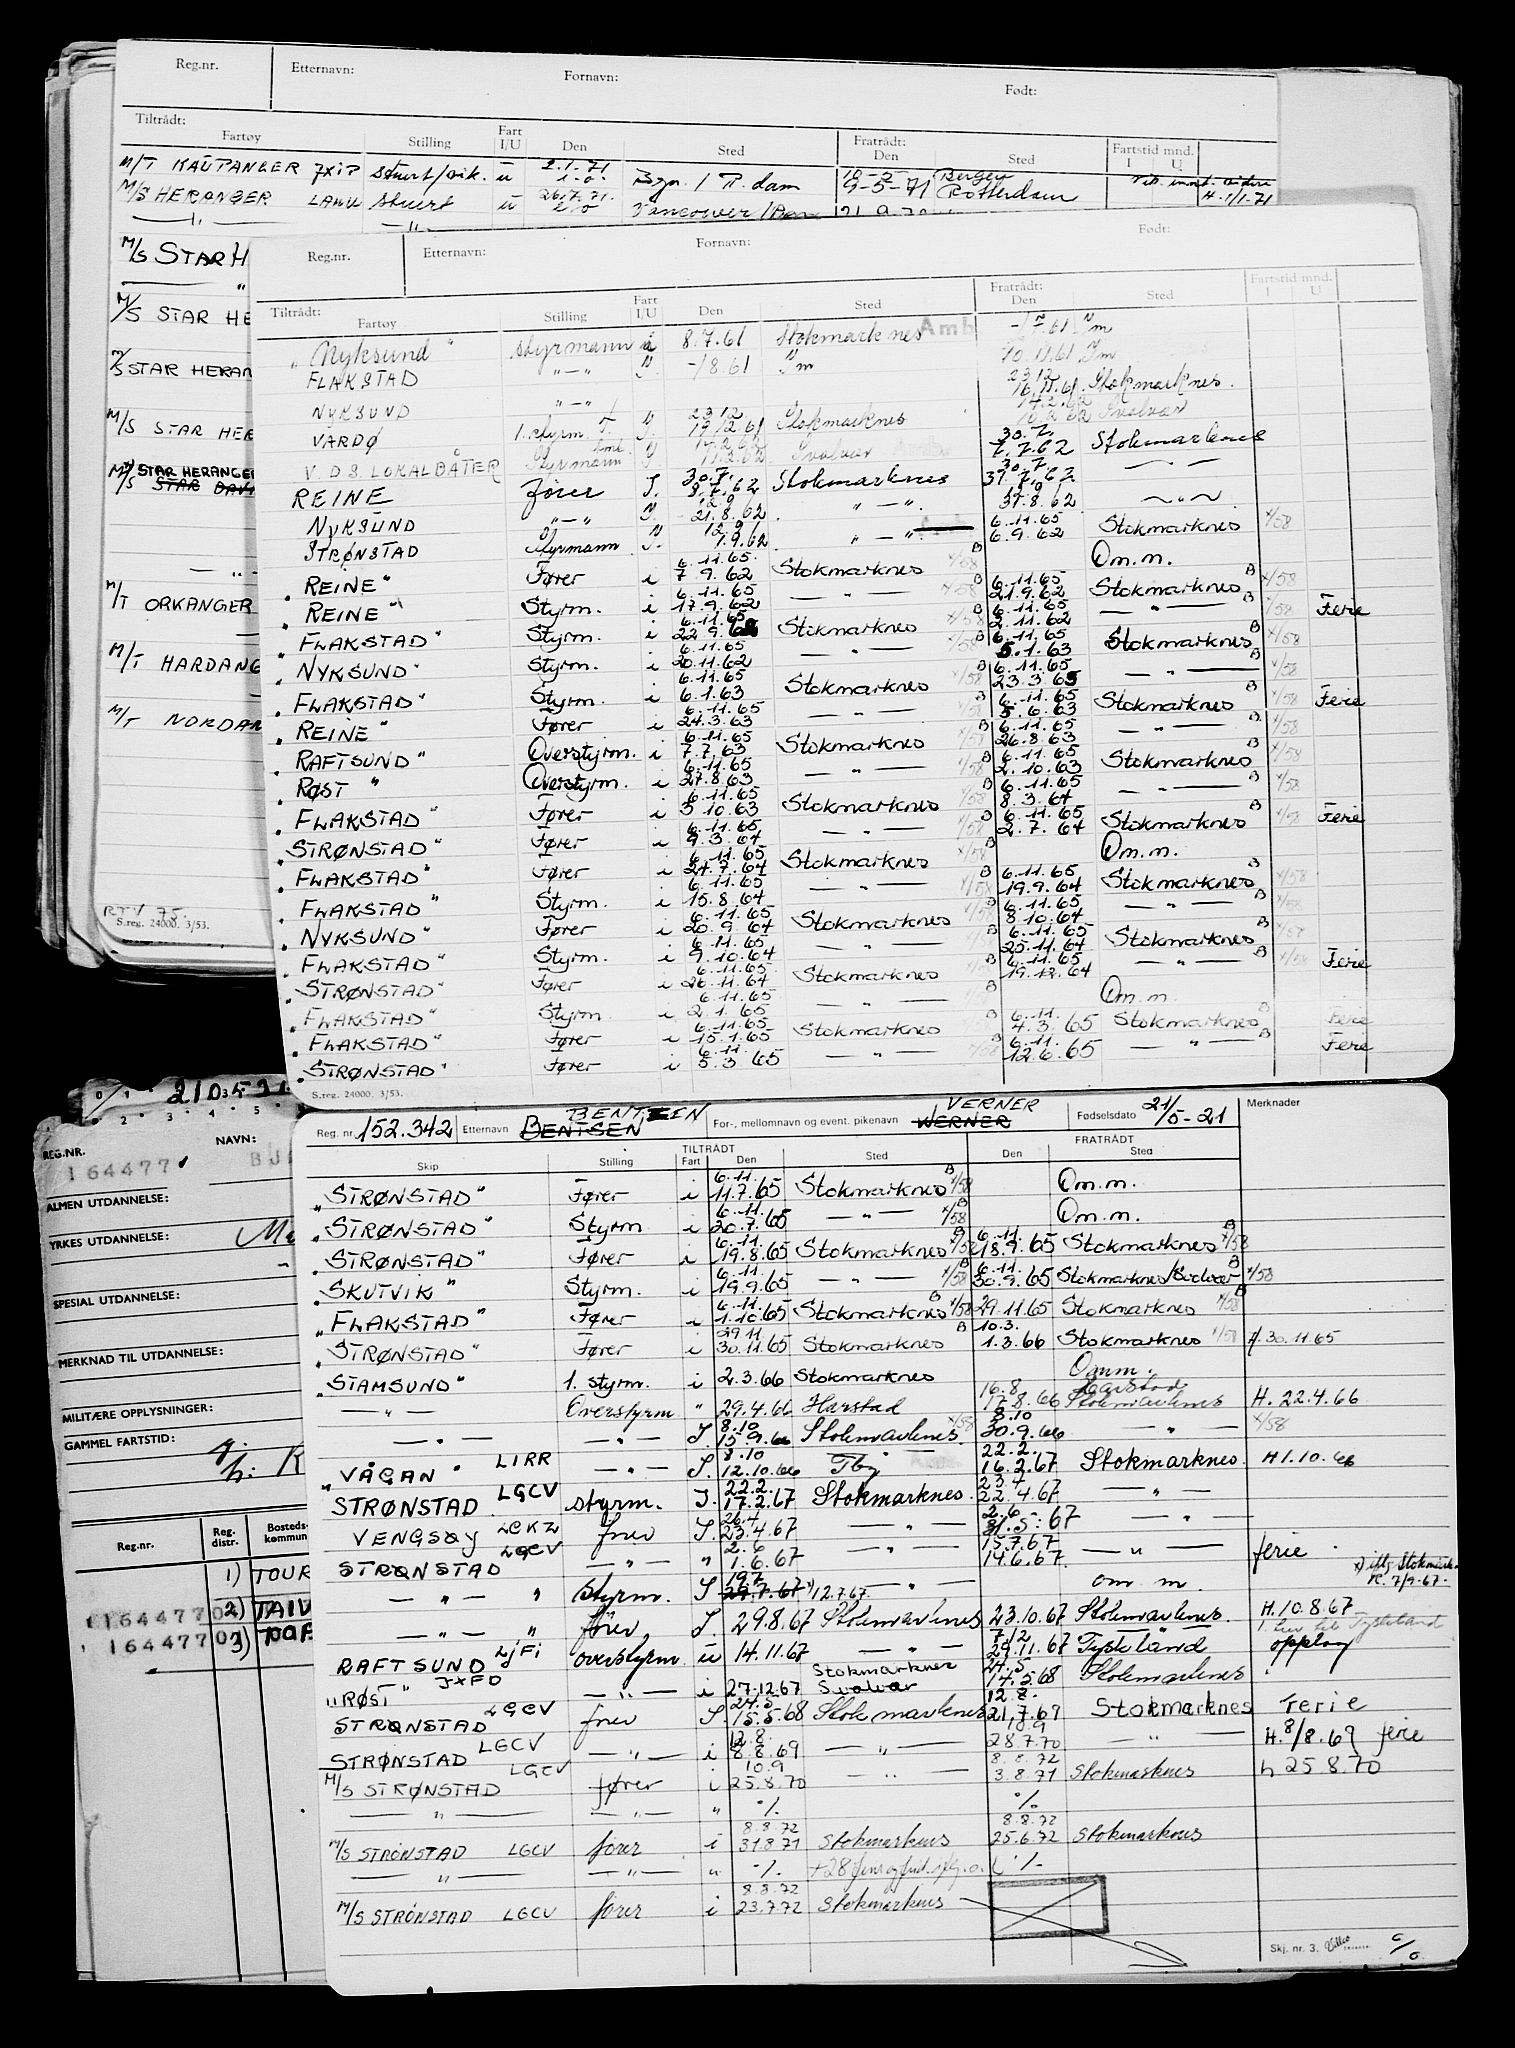 Reg.nr. Etternavn: Fornavn: Født:
Tiltrådt: Fratrådt: Fartstid mnd.
Fartøy Stilling Fart I/U Den Sted Den Sted I U
M/T KAUPANGER ü 2.1.71 Bgn. / R.dam Bergen
M/S HERANGER Stuert ü 26.7.71. 9-5-71 Rotterdam H. 1/1-71
— " — — " — Vancouver
M/S STAR H
— "
M/S STAR HE
M/S STAR HERAN
M/S STAR HER
M/S STAR HERANGER
M/T ORKANGER
M/T HARDANG
M/T NORDAN
RTV 75.
S.reg. 24000. 3/53.
Reg.nr. Etternavn: Fornavn: Født:
Tiltrådt: Fratrådt: Fartstid mnd.
Fartøy Stilling Fart I/U Den Sted Den Sted I U
"Nyksund" styrmann 8.7.61 Stokmarknes
FLAKSTAD — " — -/8.61 10.11.61
NYKSUND — " — 16.11.61 Stokmarknes.
VARDØ 1. styrm. 23 12 Stokmarknes 14.2.62 Svolvær
V.D.S. LOKALBÅTER Styrmann Svolvær 30.7. 1.7.62 Stokmarknes
REINE fører I. 30.7. 8.7.62 Stokmarknes 30.7. 31.7.62 — " —
NYKSUND — " — 21.8.62 — " — 31.8.62 — " —
STRØNSTAD Styrmann I. 1.9.62 — " — 6.11.65 6.9.62 Stokmarknes x/58
"REINE" Fører i 6.11.65 7.9.62 Stokmarknes x/58 Om.m.
"REINE" Styrm. i 6.11.65 17.9.62 — " — x/58 6.11.65 21.9.62 Stokmarknes x/58
"FLAKSTAD" Styrm. i 6.11.65 22.9.62 Stokmarknes x/58 6.11.65 2.11.62 — " — x/58 Ferie
"NYKSUND" Styrm. i 6.11.65 20.11.62 — " — x/58 6.11.65 5.1.63 Stokmarknes x/58
"FLAKSTAD" Styrm. i 6.11.65 6.1.63 Stokmarknes x/58 6.11.65 — " — x/58
"REINE" Fører i 6.11.65 24.3.63 — " — x/58 6.11.65 5.6.63 Stokmarknes x/58 Ferie
"RAFTSUND" Overstyrm. i 6.11.65 7.7.63 Stokmarknes x/58 6.11.65 26.8.63 — " — x/58
"RØST" Overstyrm. i 6.11.65 27.8.63 — " — x/58 6.11.65 2.10.63 Stokmarknes x/58
"FLAKSTAD" Fører i 6.11.65 3.10.63 Stokmarknes x/58 6.11.65 8.3.64 — " — x/58
"STRØNSTAD" Fører i 6.11.65 9.3.64 — " — x/58 6.11.65 2.7.64 Stokmarknes x/58 Ferie
"FLAKSTAD" Fører i 6.11.65 24.7.64 Stokmarknes x/58 Om.m.
"FLAKSTAD" Styrm. i 6.11.65 15.8.64 — " — x/58 6.11.65 19.9.64 Stokmarknes x/58
"NYKSUND" Fører i 6.11.65 20.9.64 Stokmarknes x/58 6.11.65 8.10.64 — " — x/58
"FLAKSTAD" Styrm. i 6.11.65 9.10.64 — " — x/58 6.11.65 25.11.64 Stokmarknes x/58
"STRØNSTAD" Fører i 6.11.65 26.11.64 Stokmarknes x/58 6.11.65 19.12.64 — " — x/58 Ferie
"FLAKSTAD" Styrm. i 6.11.65 2.1.65 — " — Om.m.
"FLAKSTAD" Fører i 6.11.65 15.1.65 Stokmarknes 6.11. 4.3.65 Stokmarknes Ferie
"STRØNSTAD" Fører i 6.11. 5.3.65 — " — x/58 6.11. 12.6.65 — " — Ferie
S.reg. 24000. 3/53.
REG.NR. NAVN:
164477
ALMEN UTDANNELSE:
YRKES UTDANNELSE:
SPESIAL UTDANNELSE:
MERKNAD TIL UTDANNELSE:
MILITÆRE OPPLYSNINGER:
GAMMEL FARTSTID:
Reg.nr. Reg. distr. Bosteds- kommun
1) TOUR
2) TAIV
3)
Reg. nr. 152.342 Etternavn BENTSEN BENTZEN For-, mellomnavn og event. pikenavn WERNER VERNER Fødselsdato 21/5-21 Merknader
TILTRÅDT FRATRÅDT
Skip Stilling Fart Den Sted Den Sted
"STRØNSTAD" Fører i 6.11. 11.7.65 Stokmarknes x/58 Om.m.
"STRØNSTAD" Styrm i 6.11. 20.7.65 — " — x/58 Om.m.
"STRØNSTAD" Fører i 6.11. 19.8.65 Stokmarknes x/58 6.11. 18.9.65 Stokmarknes x/58
"SKUTVIK" Styrm. i 6.11. 19.9.65 — " — x/58 6.11. 30.9.65 Stokmarknes/Svolvær x/58
"FLAKSTAD" Fører i 6.11. 1.10.65 Stokmarknes x/58 29.11.65 Stokmarknes x/58
"STRØNSTAD" Fører i 29.11 30.11.65 Stokmarknes 10.3. 1.3.66 Stokmarknes x/58 H 30.11.65
"STAMSUND" 1. styrm. i 2.3.66 Stokmarknes Omm.
— " — Overstyrm " 29.4.66 Harstad 16.8. 17.8.66 Harstad Stokmarknes H. 22.4.66
— " — — " — I. 8.10 15.9.66 Stokmarknes. x/58 8.10 30.9.66 — " — x/58
"VÅGAN" LIRR — " — I. 8.10 12.10.66 Tby 22.2. 16.2.67 Stokmarknes. H 1.10.66
STRØNSTAD LGCV styrm. I. 22.2. 17.2.67 Stokmarknes. 22.4.67 — " —
VENGSØY fører I. 26.4. 23.4.67 — " — 2.6 31.5.67 — " —
STRØNSTAD LGCV — " — " 2.6 1.6.67 — " — 15.7.67 14.6.67. — " — ferie
— " — " styrm. I 12.7.67 — " — om m.
— " — " fører I. 29.8.67 Stokmarknes 23.10.67 Stokmarknes. H. 10.8.67
RAFTSUND LJFI overstyrm ü 14.11.67 — " — 7/12 29.11.67 Tyskland opplag
"RØST" JXFD — " — i 27.12.67 Stokmarknes Svolvær 24.5 14.5.68 Stokmarknes
STRØNSTAD LGCV fører I. 24.5 15.5.68 Stokmarknes 12.8. Stokmarknes Ferie
STRØNSTAD LGCV — " — i 12.8. 8.8.69 — " — 28.7.70 — " — H. 8/8.69 ferie
M/S STRØNSTAD LGCV fører i 10.9 25.8.70 — " — 8.8.72 3.8.71 Stokmarknes h 25 8.70
— " — — " — " ·/. ·/.
M/S STRØNSTAD LGCV fører i 8.8.72 31.8.71 Stokmarknes 8.8.72 25.6.72 Stokmarknes
— " — — " — " ·/. ·/.
M/S STRØNSTAD LGCV fører i 8.8.72 23.7.72 Stokmarknes
Skj. nr. 3.